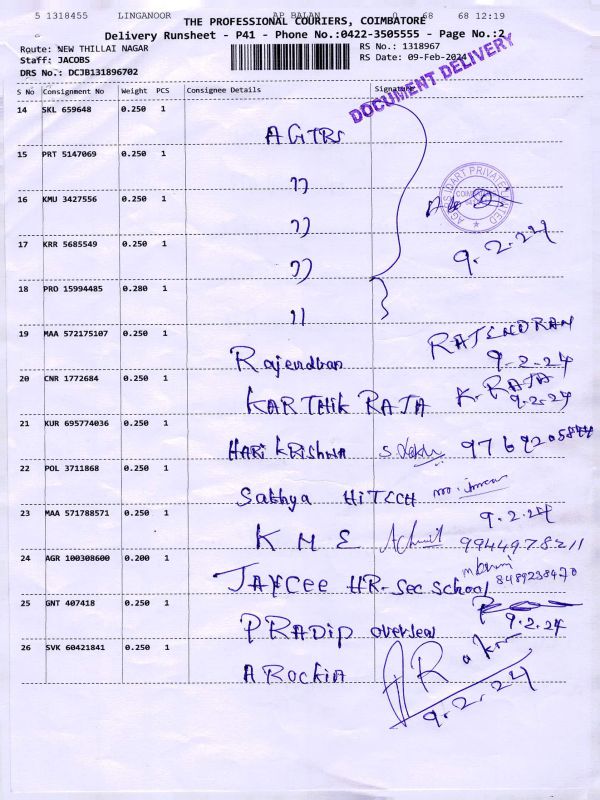 5 1318455 LINGANOOR AP BALAN 0 68 68 12:19
THE PROFESSIONAL COURIERS, COIMBATORE
Delivery Runsheet - P41 - Phone No.:0422-3505555 - Page No.:2
Route: NEW THILLAI NAGAR
RS No.: 1318967
Staff: JACOBS
RS Date: 09-Feb-2024
DRS No.: DCJB131896702
DOCUMENT DELIVERY
S No Consignment No Weight PCS Consignee Details Signature
14 SKL 659648 0.250 1 AGTRS
15 PRT 5147069 0.250 1 ”
16 KMU 3427556 0.250 1 ”
17 KRR 5685549 0.250 1 ” 9.2.24
18 PRO 15994485 0.280 1 ”
19 MAA 572175107 0.250 1 Rajendran RAJENDRAN 9-2-24
20 CNR 1772684 0.250 1 KARTHIK RAJA K. RAJA 9.2.24
21 KUR 695774036 0.250 1 HARI KRISHNA
22 POL 3711868 0.250 1 Sathya HITECH
23 MAA 571788571 0.250 1 K M E 9.2.24 9944978211
24 AGR 100308600 0.200 1 JAYCEE HR-Sec School 8489238470
25 GNT 407418 0.250 1 PRADIP oversea 9.2.24
26 SVK 60421841 0.250 1 A Rockia 9.2.24